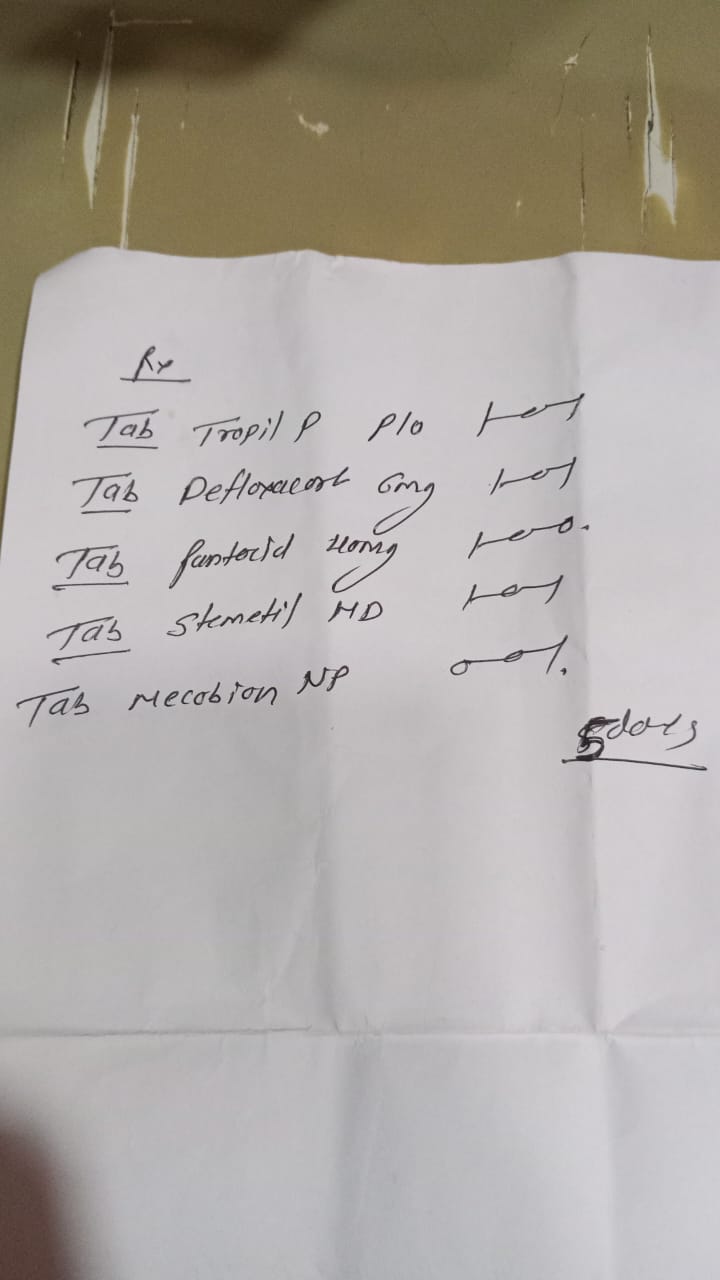 Rx
Tab Tropil P P/o 1-0-1
Tab Defloxacort 6mg 1-0-1
Tab Pantocid 40mg 1-0-0.
Tab Stemetil MD 1-0-1
Tab Mecobion NP 0-0-1.
5days